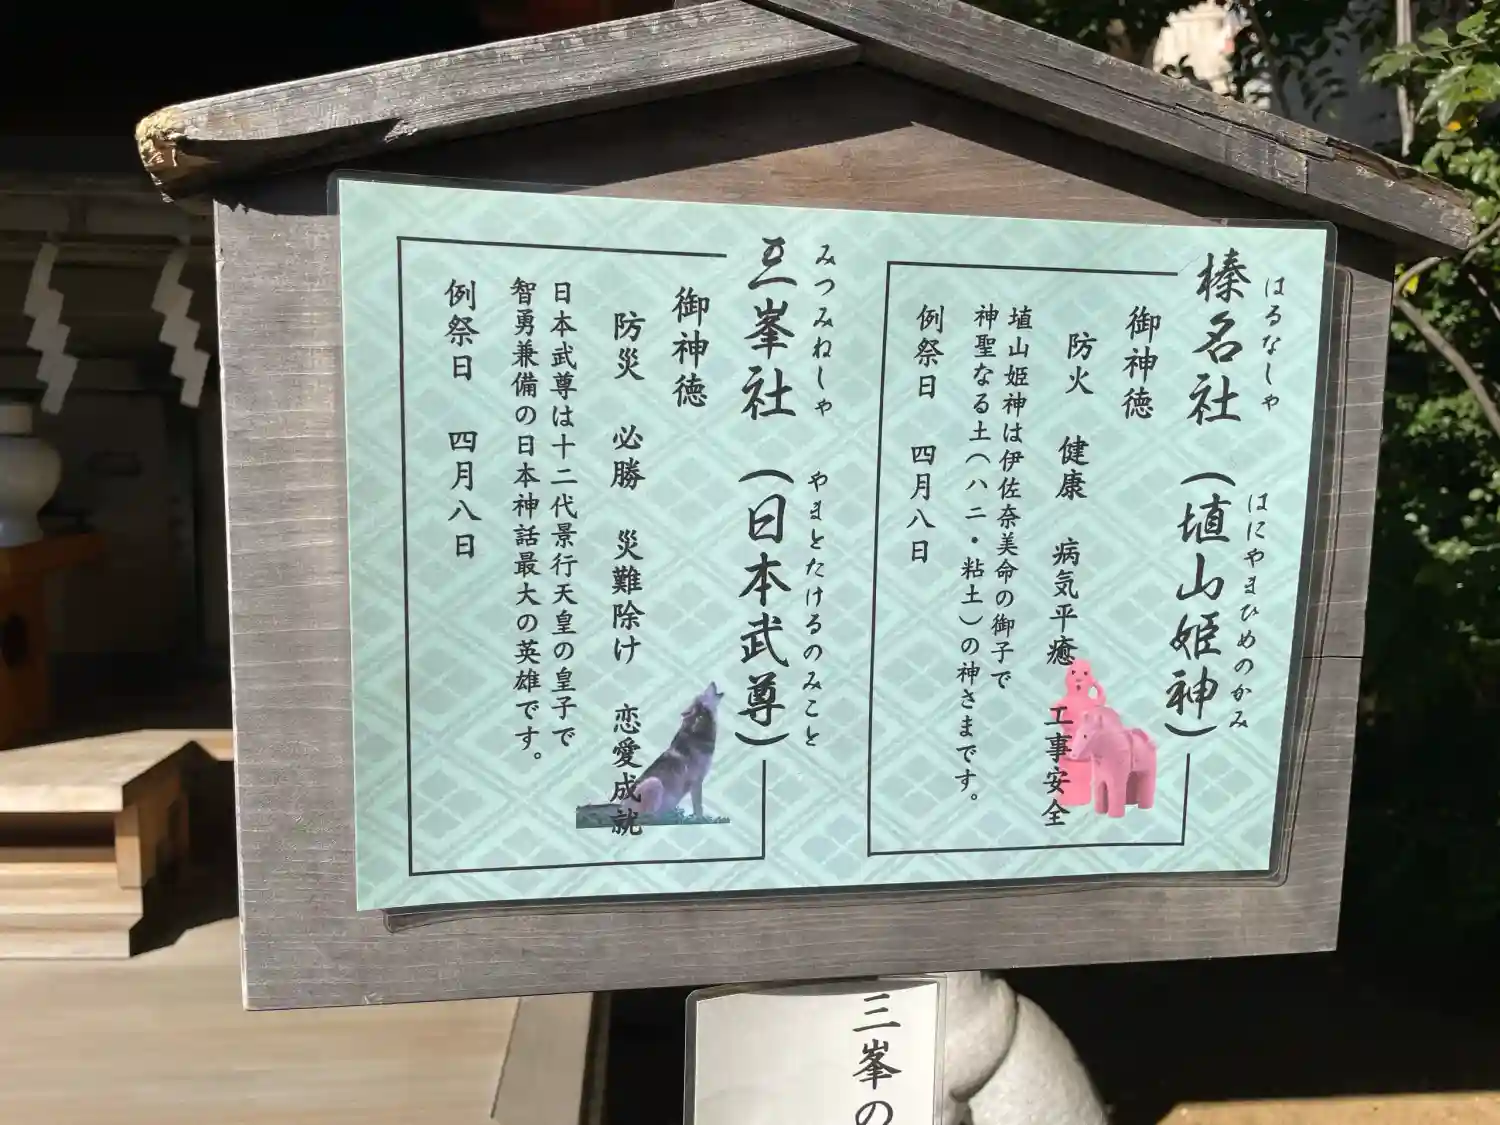 はるなしゃ
はにやまひめのかみ
榛名社（埴山姫神）
御神徳
防火 健康 病気平癒 工事安全
埴山姫神は伊佐奈美命の御子で
神聖なる土（ハニ・粘土）の神さまです。
例祭日 四月八日
みつみねしゃ
やまとたけるのみこと
三峯社（日本武尊）
御神徳
防災 必勝 災難除け 恋愛成就
日本武尊は十二代景行天皇の皇子で
智勇兼備の日本神話最大の英雄です。
例祭日 四月八日
三峯の